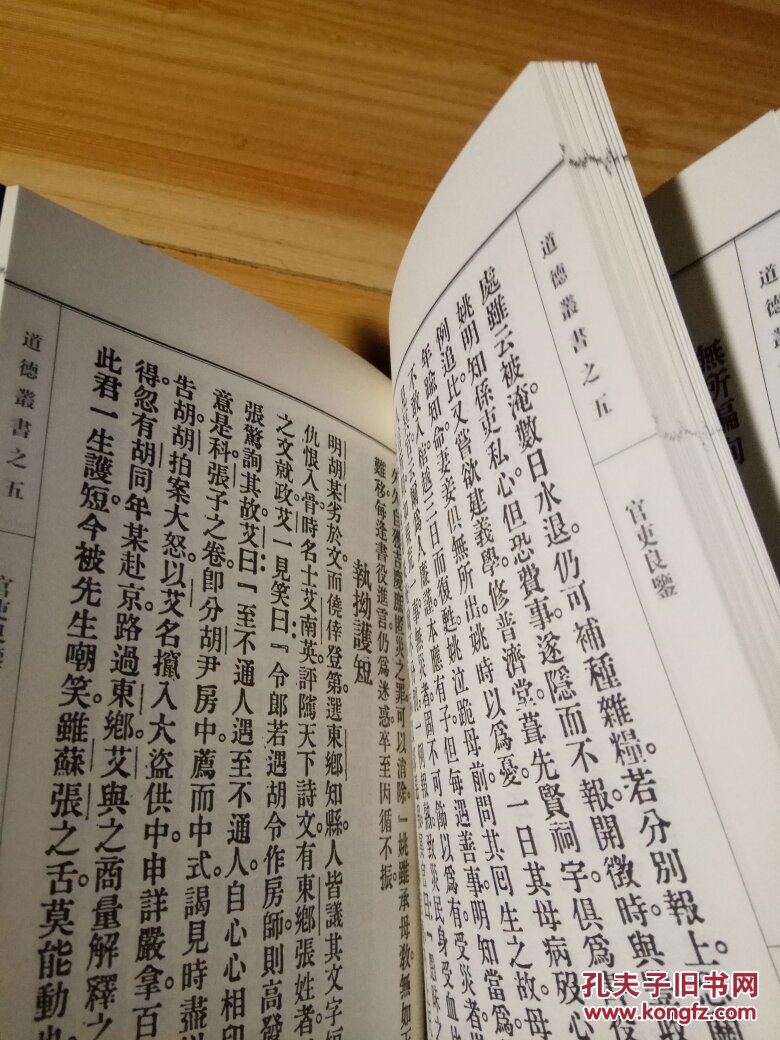 道德叢書之五
官吏良鑒
處雖云被淹。數日水退。仍可補種雜糧。若分別報上。
姚明知係吏私心。但恐費事。遂隱而不報。開徵時與
例追比。又嘗欲建義學。修普濟堂。葺先賢祠宇。俱爲
年踰知命。妻妾俱無所出。姚時以爲憂。一日其母病歿。心
不敢入棺。越三日而復甦。姚泣跪母前。問其囘生之故。母
爲人廉謹。本應有子。但每遇善事。明知當爲
無災者固不可飾以爲有。受災者
報熟。致災民身受血比
災之罪可以消除。』姚雖承母敎。無如
難移。每逢書役進言。仍爲迷惑。卒至因循不振。
執拗護短
明胡某劣於文。而僥倖登第。選東鄕知縣。人皆議其文字短
仇恨入骨。時名士艾南英評隲天下詩文。有東鄕張姓者
之文就政。艾一見笑曰。『令郎若遇胡令作房師。則高發
張驚詢其故。艾曰。『至不通人遇至不通人。自心心相印
意是科張子之卷。卽分胡尹房中。薦而中式。謁見時盡
吿胡。胡拍案大怒。以艾名攛入大盜供中。申詳嚴拿。百
得。忽有胡同年某赴京。路過東鄕。艾與之商量解釋之
此君一生護短。今被先生嘲笑。雖蘇張之舌。莫能動也
道德叢書之五
道德叢書之五
孔夫子旧书网
www.kongfz.com